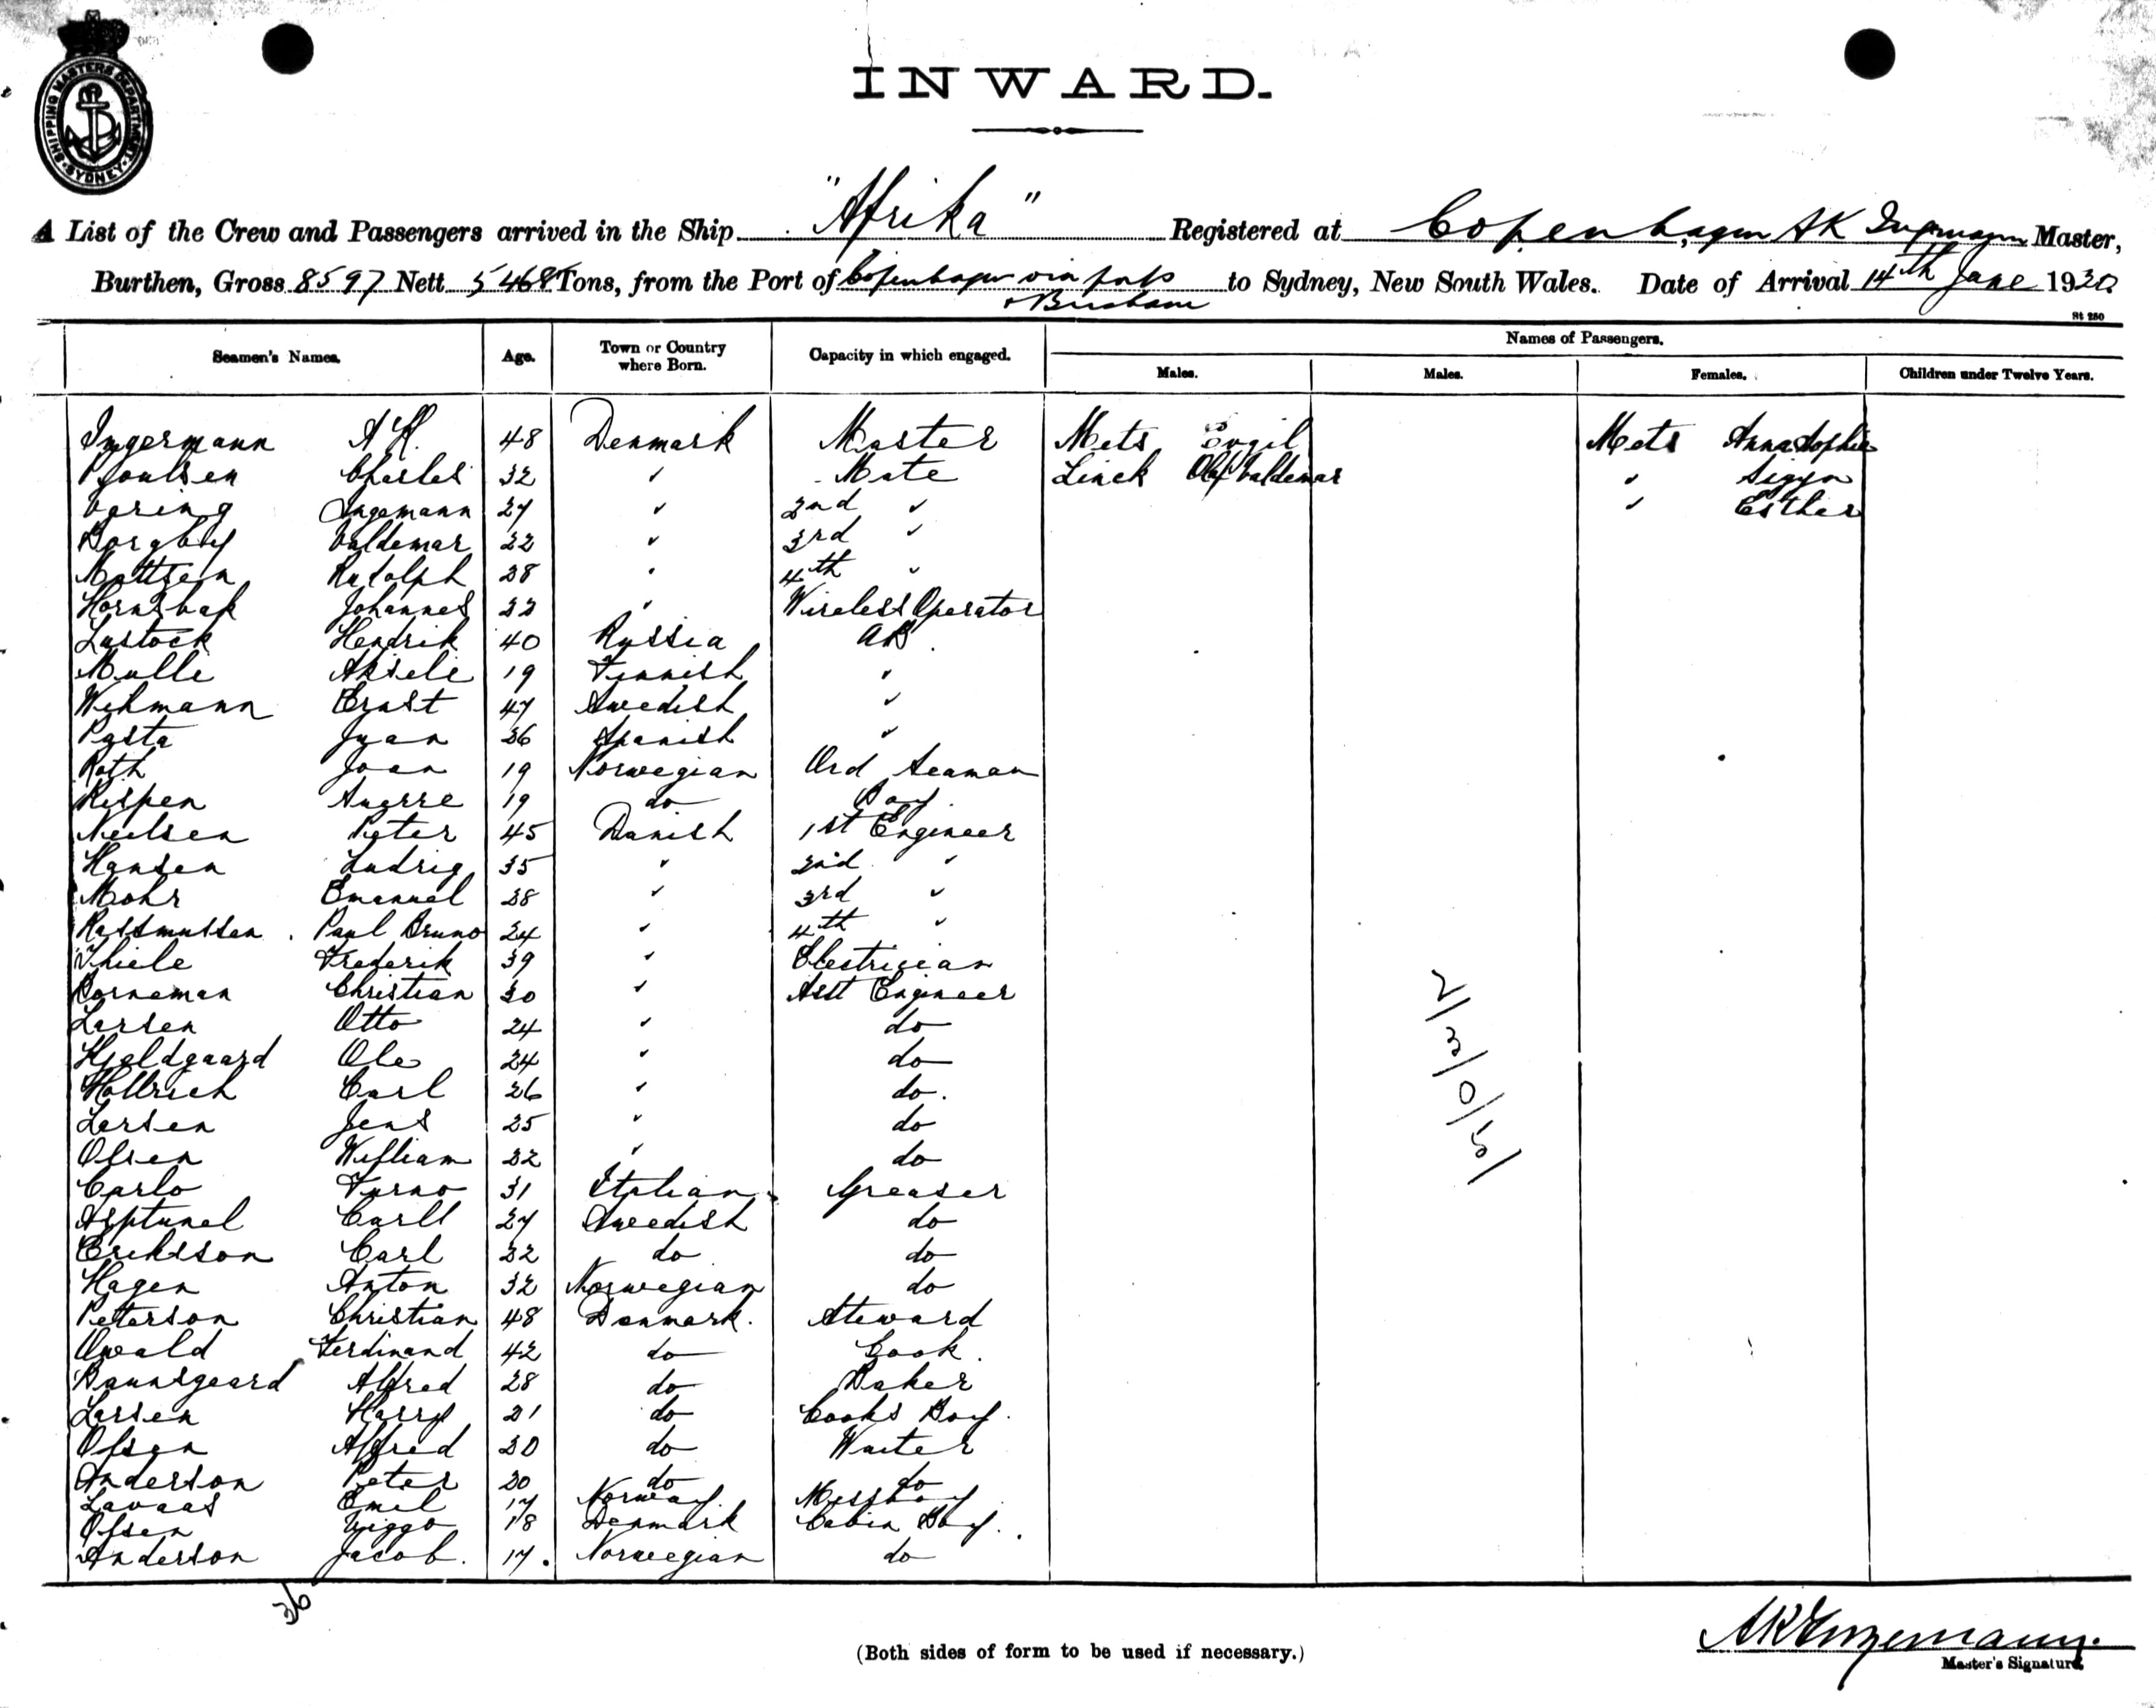 SHIPPING MASTERS DEPARTMENT SYDNEY
INWARD.
A List of the Crew and Passengers arrived in the Ship "Afrika" Registered at Copenhagen AK Ingemann Master,
Burthen, Gross 8597 Nett 5468 Tons, from the Port of Copenhagen via ports to Sydney, New South Wales. Date of Arrival 14th June 1920
St 250
Seamen's Names. Age. Town or Country where Born. Capacity in which engaged. Names of Passengers.
Males. Males. Females. Children under Twelve Years.
Ingermann A K. 48 Denmark Master Mets Eygil Mets Anna Sophie
Poulsen Charles 32 " Mate Linck Olaf Valdemar " Sigyn
Ingemann 27 " 2nd " " Esther
Borgbly Valdemar 22 " 3rd "
Mattsen Rudolph 28 " 4th "
Hornsbak Johannes 22 " Wireless Operator
Lustock Hendrik 40 Russia AB.
Mulle Aksele 19 Finnish "
Wihmann Ernst 47 Swedish "
Pasta Juan 26 Spanish "
Roth Joan 19 Norwegian Ord Seaman
Rispen Sverre 19 do Boy.
Neilsen Peter 45 Danish 1st Engineer
Hansen Ludvig 35 " 2nd "
Mohr Emanuel 28 " 3rd "
Rassmussen. Paul Bruno 24 " 4th "
Thiele Frederik 39 " Electrician
Borneman Christian 30 " Asst Engineer
Larsen Otto 24 " do
Kjeldgaard Ole 24 " do
Hollrich Carl 26 " do.
Larsen Jens 25 " do
Olsen William 22 " do
Carlo Furno 31 Italian Greaser
Asptunel Carll 27 Swedish do
Eriksson Carl 22 do do
Hagen Anton 32 Norwegian do
Peterson Christian 48 Denmark. Steward
Owald Ferdinand 42 do Cook.
Baunsgaard Alfred 28 do Baker
Larsen Harry 21 do Cooks Boy.
Olsen Alfred 20 do Waiter
Anderson Peter 20 do do
Lavaas Emil 17 Norway. Messboy
Olsen Viggo 18 Denmark Cabin Boy.
Anderson Jacob. 17. Norwegian do
2/3/0/5/
36
(Both sides of form to be used if necessary.)
AK Ingemann.
Master's Signature.